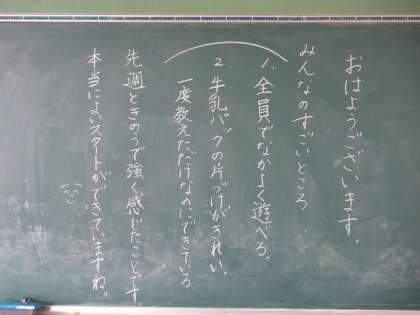 おはようございます。
みんなのすごいところ
1. 全員でなかよく遊べる。
2. 牛乳パックの片づけがきれい。
一度教えただけなのにできている
先週ときのうで強く感じたことです。
本当によいスタートができていますね。